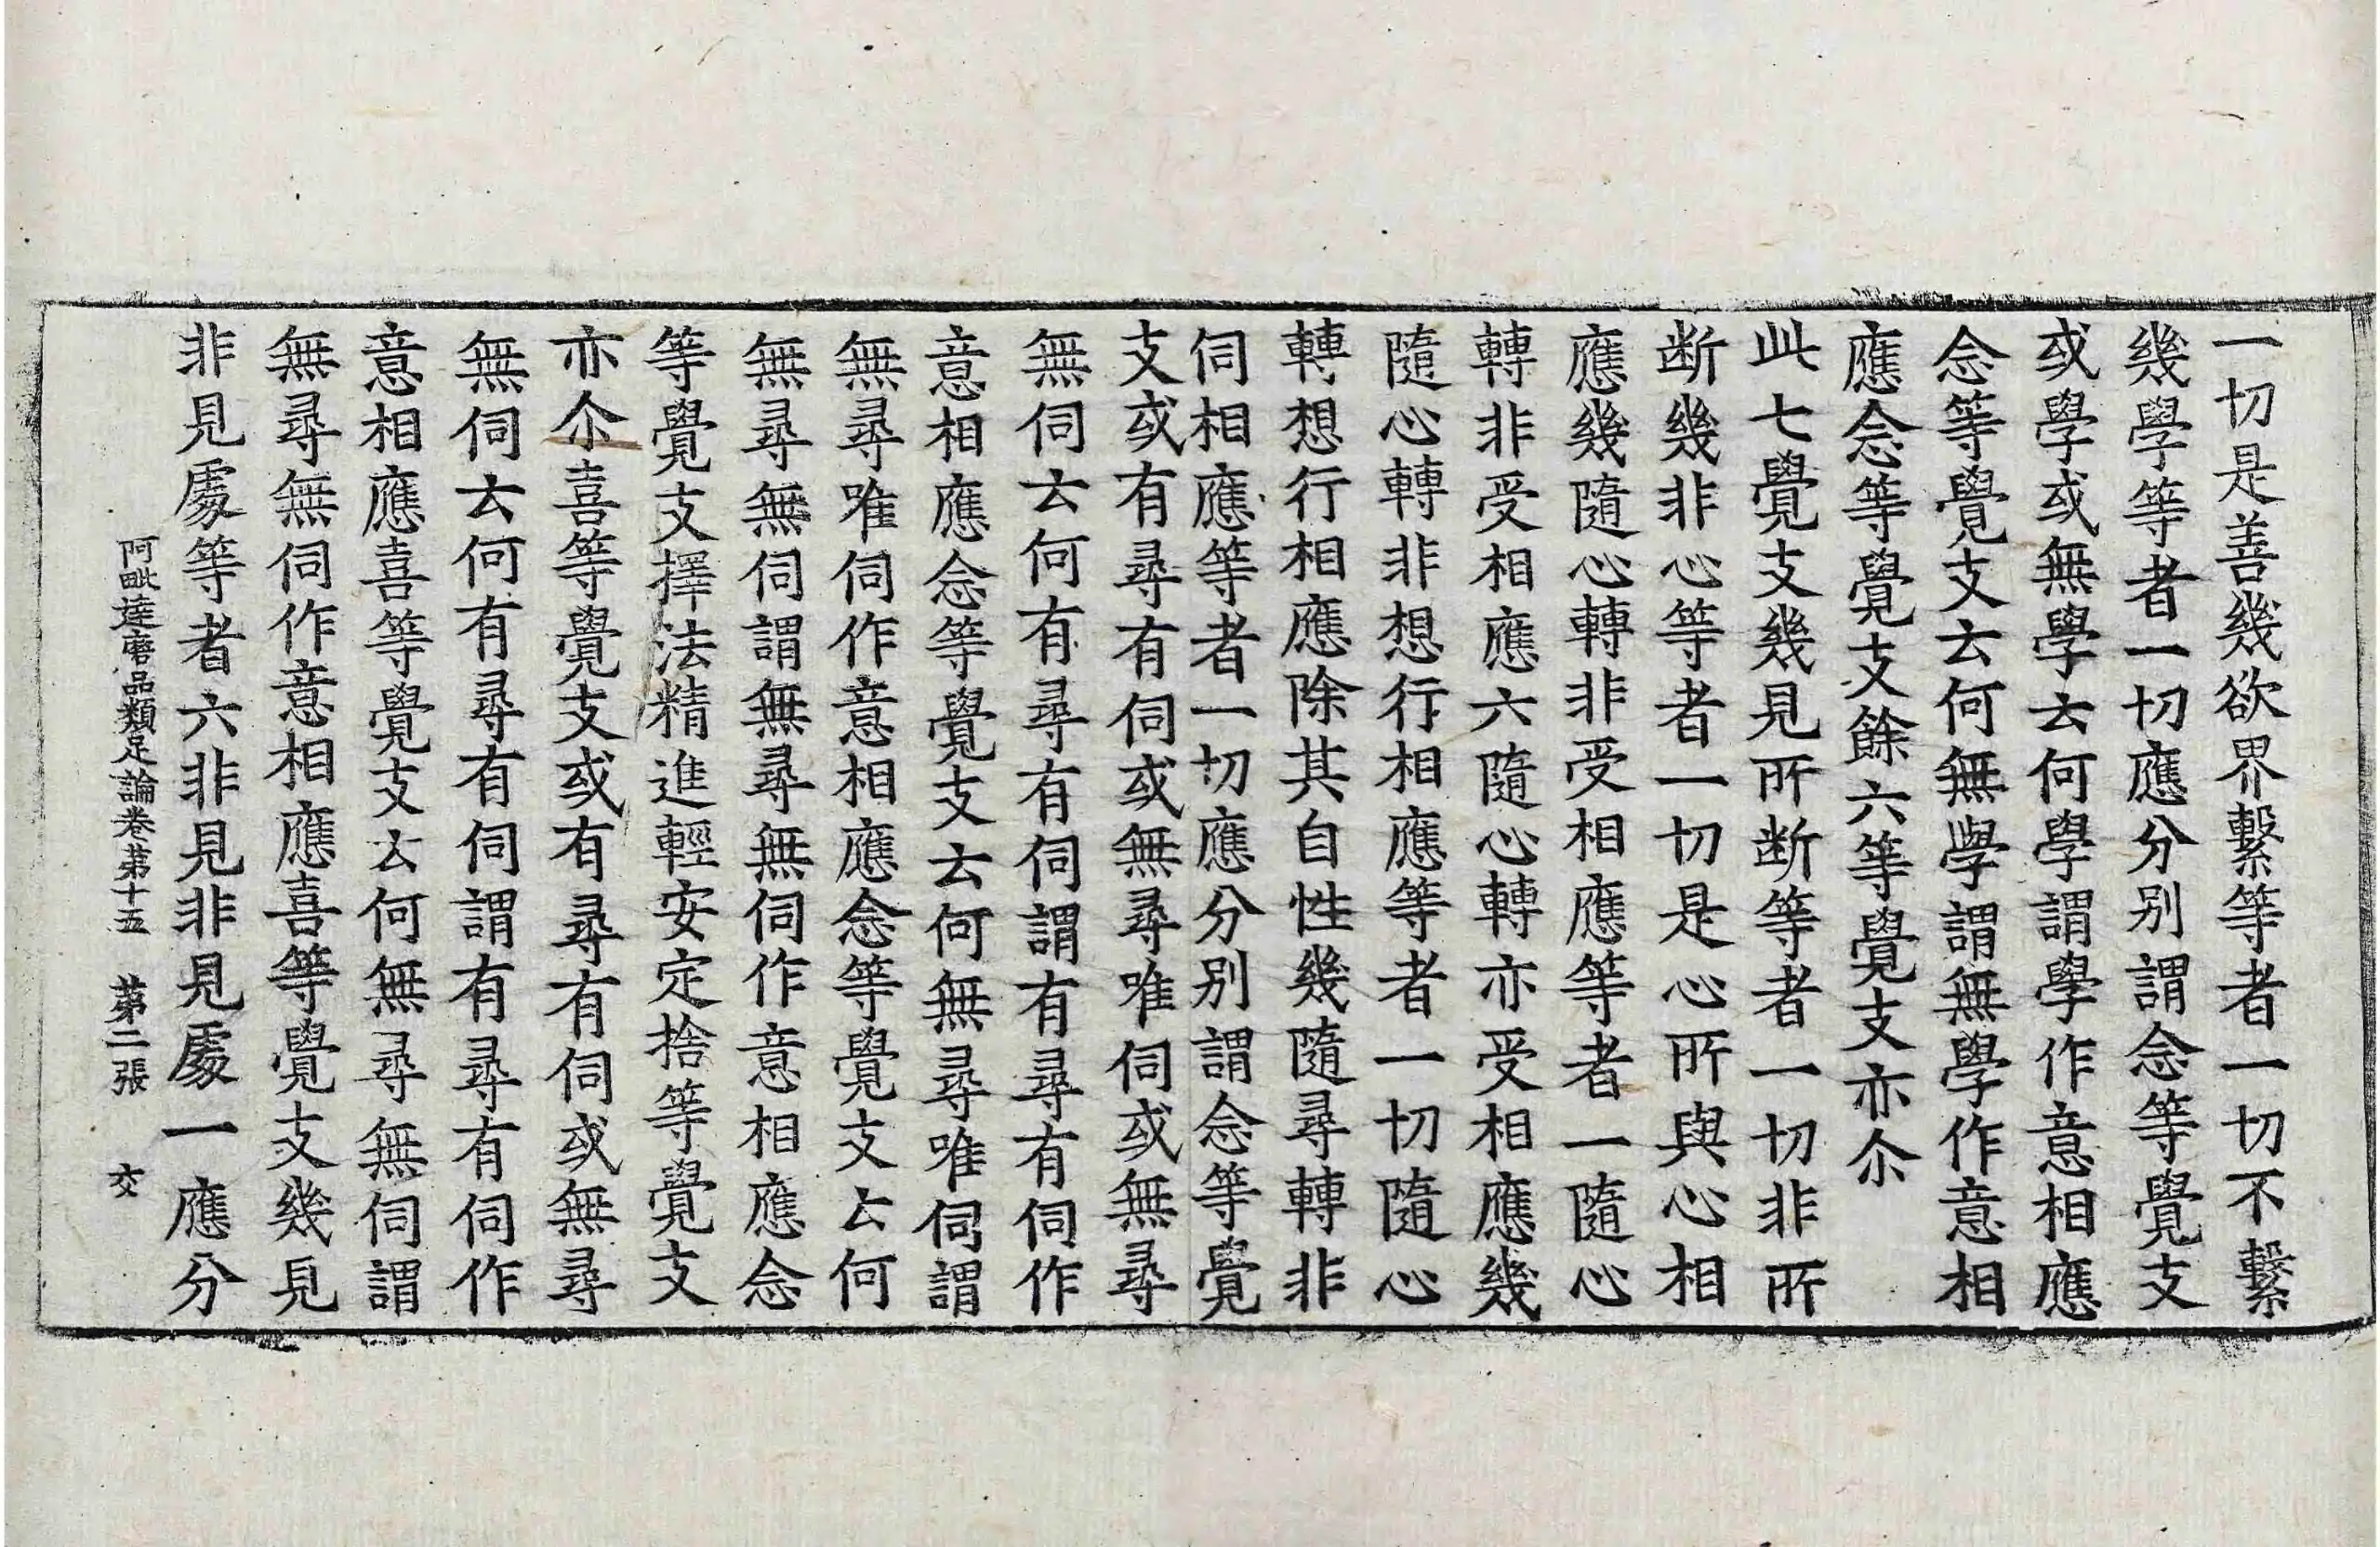 一切是善幾欲界繫等者一切不繫
幾學等者一切應分別謂念等覺支
或學或無學云何學謂學作意相應
念等覺支云何無學謂無學作意相
應念等覺支餘六等覺支亦尒
此七覺支幾見所断等者一切非所
断幾非心等者一切是心所與心相
應幾隨心轉非受相應等者一隨心
轉非受相應六隨心轉亦受相應幾
隨心轉非想行相應等者一切隨心
轉想行相應除其自性幾隨尋轉非
伺相應等者一切應分別謂念等覺
支或有尋有伺或無尋唯伺或無尋
無伺云何有尋有伺謂有尋有伺作
意相應念等覺支云何無尋唯伺謂
無尋唯伺作意相應念等覺支云何
無尋無伺謂無尋無伺作意相應念
等覺支擇法精進輕安定捨等覺支
亦尒喜等覺支或有尋有伺或無尋
無伺云何有尋有伺謂有尋有伺作
意相應喜等覺支云何無尋無伺謂
無尋無伺作意相應喜等覺支幾見
非見處等者六非見非見處一應分
阿毗達磨品類足論卷第十五 第二張 交